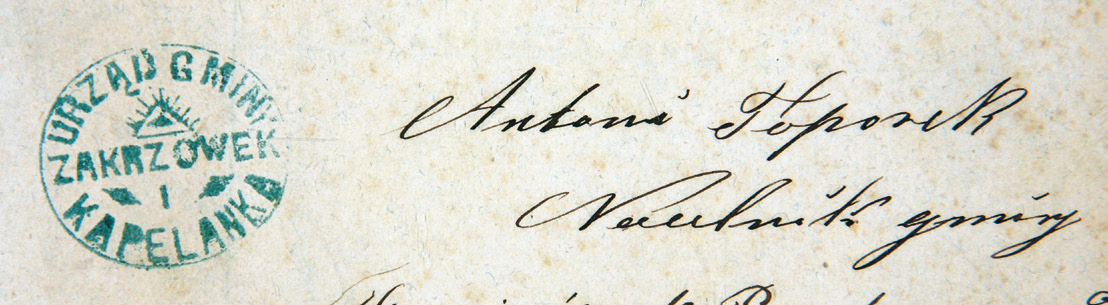 URZĄD GMINY
ZAKRZÓWEK
I
KAPELANKA
Antoni Tóporek
Naczelnik gminy